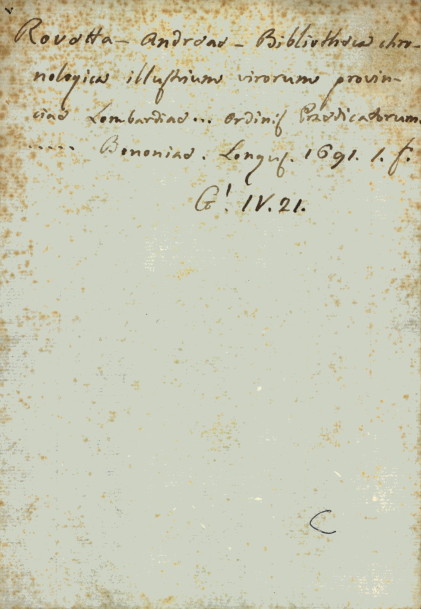 Rovetta – Andreae – Bibliotheca chro-
nologica illustrium virorum provin-
ciae Lombardiae ... ordinis Praedicatorum.
..... Bononiae. Longus. 1691. 1. f.
G! IV. 21.
C